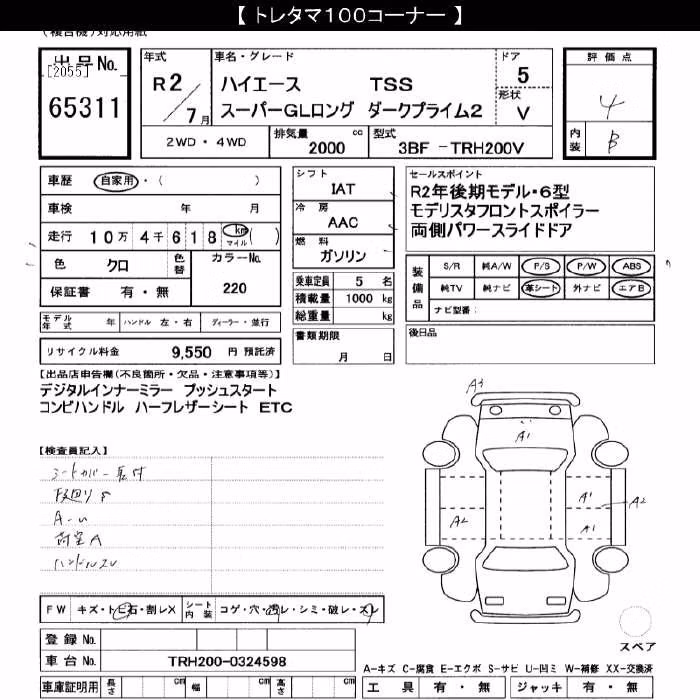 【 トレタマ100コーナー 】
出品No.
[2055]
65311
年式
R2/7月
車名・グレード
ハイエース TSS
スーパーGLロング ダークプライム2
ドア
5
形状
V
評価点
4
内装
B
2WD・4WD
排気量 cc
2000
型式
3BF -TRH200V
車歴 自家用・( )
車検 年 月
走行 10万 4千 6 1 8 km マイル ( )
色 クロ 色替
カラーNo.
220
保証書 有・無
シフト
IAT
冷房
AAC
燃料
ガソリン
乗車定員 5 名
積載量 1000 kg
総重量 kg
セールスポイント
R2年後期モデル・6型
モデリスタフロントスポイラー
両側パワースライドドア
装備品
S/R 純A/W P/S P/W ABS
純TV 純ナビ 革シート 外ナビ エアB
ナビ型番:
モデル年式 年 ハンドル 左・右 ディーラー・並行
リサイクル料金 9,550 円 預託済
書類期限
月 日
後日品
【出品店申告欄(不良箇所・欠品・注意事項等)】
デジタルインナーミラー プッシュスタート
コンビハンドル ハーフレザーシート ETC
【検査員記入】
シートカバー取付
下回りサ
A-u
荷室A
ハンドルスレ
A3
A1
A1
A2
A2
A1
FW キズ・トビ石・割レX シート内装 コゲ・穴・汚レ・シミ・破レ・スレ
登録 No.
車台 No. TRH200-0324598
車庫証明用 長さ cm 幅 cm 高さ cm
スペア
A-キズ C-腐食 E-エクボ S-サビ U-凹ミ W-補修 XX-交換済
工具 有・無 ジャッキ 有・無